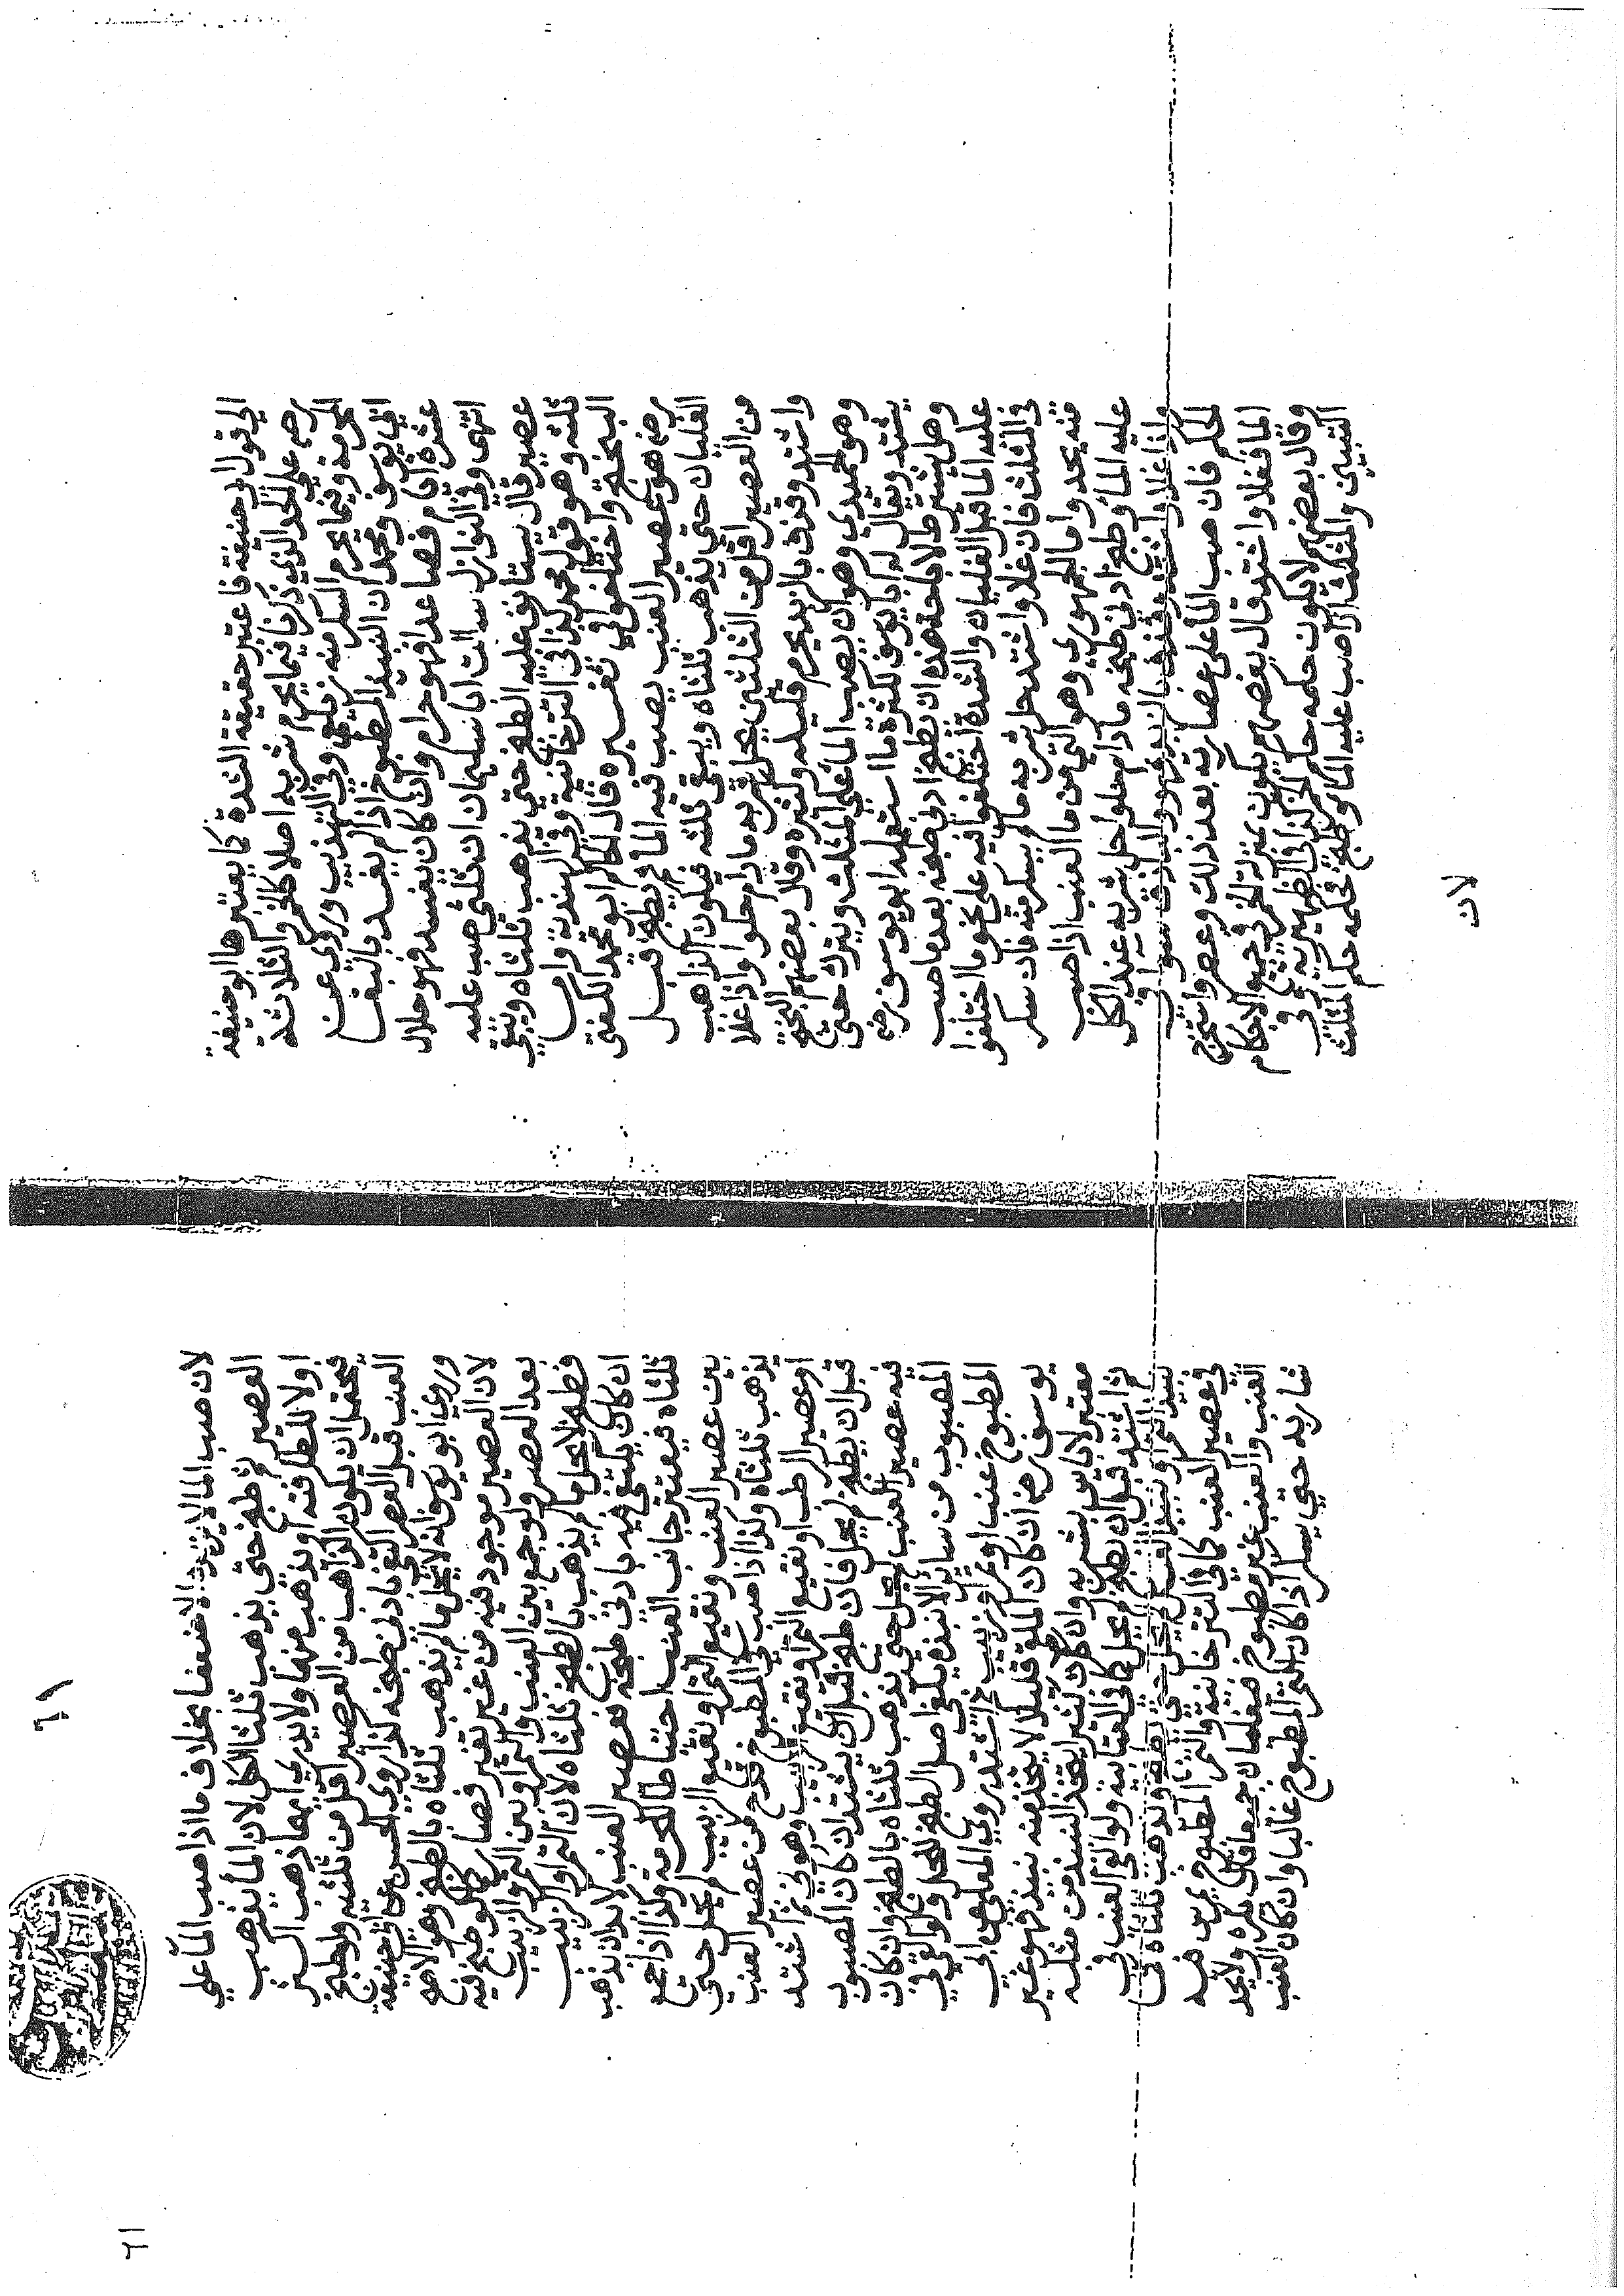 الي قول ابي حنيفة فاعتبر حقيقة الشدة كما يعتبرها ابو حنيفة
رضه علي الحد الذي ذكرنا فيما يحرم شربه اصلا كالخمر والثلاثة
المحرمة وفيما يحرم السكر منه كما وفي التهذيب وروي عن
ابي يوسف ومحمد ان النبيذ المطبوخ اذا لم يفسد بالبقا
عشرة ايام فصاعدا فهو حرام وان كان يفسد فهو حلال
انتهى وفي النوازل سالت ابا سليمان ان ثلثي صب عليه
عصير قال يستانف عليه الطبخ حتي يذهب ثلثاه ويبقي
ثلثه وهو قول محمد كذا في التترخانية وفي الهندية واما
البختج واختلفوا في تفسيره قال الحاكم ابو محمد الكفني
رضه هو عصير العنب يصب فيه الما ثم يطبخ قبل
الغليان حتي يذهب ثلثاه ويبقي ثلثه فيكون الذاهب
من العصير اقل من الثلثين يحل شربه مادام حلوا واذا غلا
واشتد وقذف بالزبد يحرم قليله وكثيره وقال بعضهم البختج
وهو الحميدي وهو ان يصب الما علي المثلث ويترك حتي
يشتد ويقال له ابا يوسفي لكثرة ما استعمله ابو يوسف رضه
وهل يشترط لاباحته هذه ان يطبخ ادني طبخه بعد ما صب
عليه الما قبل الغليان والشدة اختلفوا فيه علي نحو ما اختلفوا
في المثلث فان غلا واشتد حل شربه مالم يسكر منه فان سكر
منه يحد واما الجمهوري وهو التي من ما العنب اذا صب
عليه الما وطبخ ادني طبخه مادام حلوا حل شربه عند الكل
واذا غلا واشتد وقذف بالزبد فهو والباذق سوا في
الحكم فان صب الما علي عصارته بعد ذلك وعصر واستخرج
الما فغلا واشتد قال بعضهم يكون بمنزلة الخمر في جميع الاحكام
وقال بعضهم لا يكون حكمه حكم الخمر كذا في الظهيرية وفي
التبيين والمثلث اذا صب عليه الما وطبخ فحكمه حكم المثلث
لان
لان صب الما لا يزيده الا ضعفا بخلاف ما اذا صب الما علي
العصير ثم طبخ حتي يذهب ثلثا الكل لان الما يذهب
اولا للطافته او يذهب منهما ولا يدري ايهما ذهب اكثر
فيحتمل ان يكون الذاهب من العصير اقل من ثلثيه ولو طبخ
العنب قبل العصر اكتفي بادني طبخه كذا روي الحسن عن ابي حنيفة
وروي ابو يوسف انه لا يحل مالم يذهب ثلثاه بالطبخ وهو الاصح
لان العصير موجود فيه من غير تغير فصار كما لو طبخ فيه
بعد العصر ولو جمع بين العنب والتمر او بين التمر والزبيب
فطبخ لا يحل مالم يذهب بالطبخ ثلثاه لان التمر والزبيب
ان كان يكتفي فيه بادني طبخه فعصير العنب لابد ان يذهب
ثلثاه فيعتبر جانب العنب احتياطا للحرمة وكذا اذا جمع
بين عصير العنب ونقيع التمر او نقيع الزبيب لم يحل حتي
يذهب ثلثاه وكذا اذا صب في المطبوخ قدح من عصير العنب
او عصير الرطب او نقيع التمر او نقيع الزبيب وهو ني ثم اشتد
قبل ان يطبخ لم يحل فان طبخ قبل ان يشتد ان كان المصبوب
فيه عصير العنب لم يحل حتي يذهب ثلثاه بالطبخ وان كان
المصبوب من ساير الانبذه يكفي اصل الطبخ للحل ولو القي في
المطبوخ عنب او تمر او زبيب ثم اشتد روي المعلي عن ابي
يوسف رضه ان كان الملقي قليلا لا يتخذ منه نبيذ فهو غير
معتبر لاباس بشربه وان كان كثيرا يتخذ النبيذ من مثله
ثم اشتد قبل ان يطبخ لم يحل كما في العتابية ولو القي العنب في
نبيذ التمر او نبيذ العسل لم يحل حتي يطبخ ويذهب ثلثاه كما
في عصير العنب كما في التترخانية والتمر المطبوخ يمرس فيه
العنب والعنب غير مطبوخ فيغليان جميعا قال يكره ولا يحد
شاربه حتي يسكر اذا كان التمر المطبوخ غالبا وان كان العنب
٦١